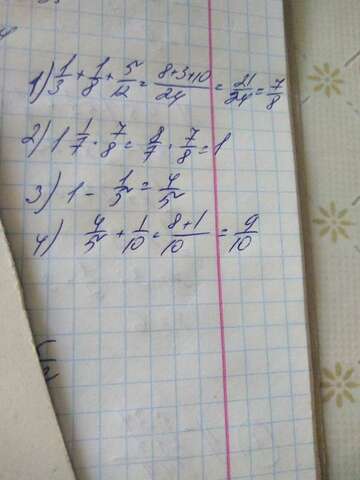 1) 1/3 + 1/8 + 5/12 = 8+3+10/24 = 21/24 = 7/8
2) 1 1/7 · 7/8 = 8/7 · 7/8 = 1
3) 1 - 1/5 = 4/5
4) 4/5 + 1/10 = 8+1/10 = 9/10